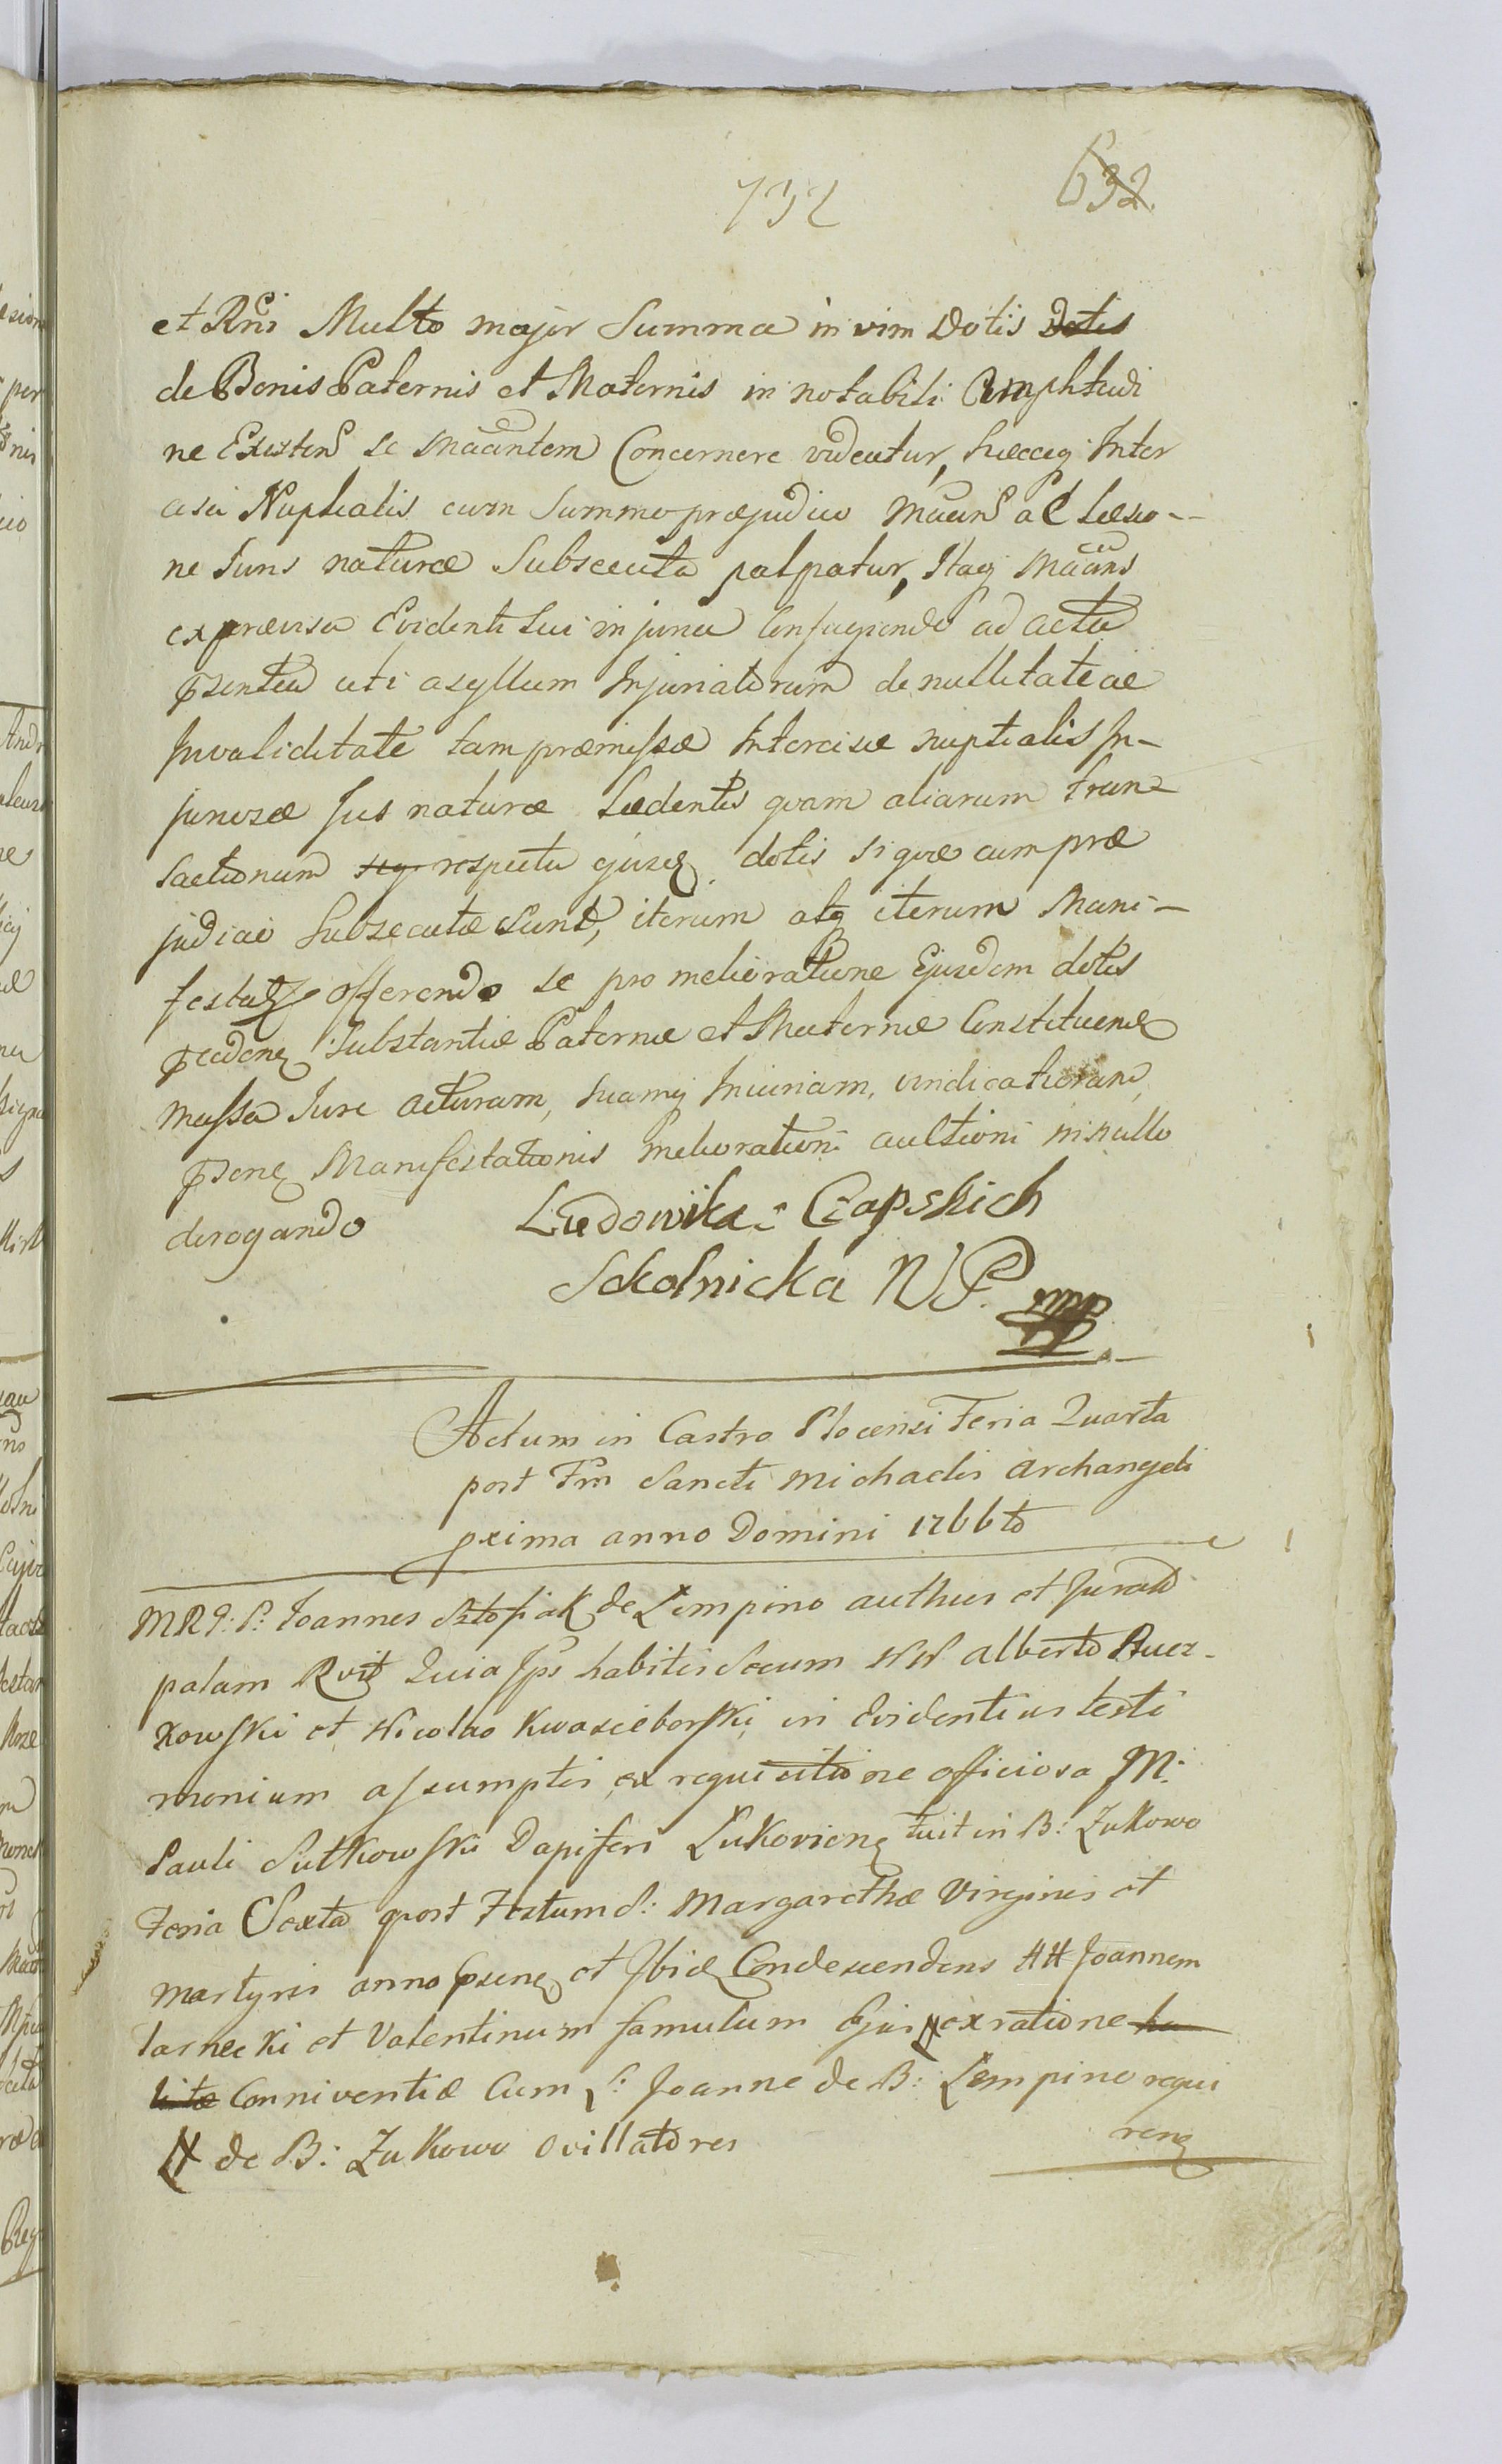 732
632.
et Rnı Multo major Summa in vim Dotis Dotis
de Bonis Paternis et Maternis in notabili Amplitudi
ne Existen se Macantem Concernere videatur, haecq Inter
cisa Nuptialis cum Summo præjudicio Macan ac Læsio-
ne Juris naturæ Subsecuta palpatur, Itaq Macans
ex præviso Evidenti Sui injuria Confugiendo ad acta
psentia uti asyllum Injuriatorum de nullitate ac
Invaliditate tam præmissæ Intercisæ nuptialis In-
juriosæ Jus naturæ Lædentis qvam aliarum tran-
sactionum respectu ejusq dotis si qvæ cum præ
judicio Subsecutæ Sunt, iterum atq iterum Mani-
festat offerendo se pro melioratione Ejusdem dotis
Substantiæ Paternæ et Maternæ Constituen
massa Jure acturam, suamq Iniuriam vindicaturam,
psenq Manifestationis melioration auctioni in nullo
derogando
Ludowika z Czapskich
Sokolnicka NP. mp
Actum in Castro Plocensi Feria Quarta
post Fm Sancti Michaelis Archangeli
pxima anno Domini 1766to
MRP: P: Joannes de Lempino authus et Jurat
palam Rvit Quia Ips habitis Secum NN Alberto
kowski et Nicolao Kwasieborski in Evidentius testi
monium assumptis ex requisitione officiosa M:
Pauli Sutkowski Dapiferi Lukovienq fuit in B: Zukowo
Feria Sexta post Festum S: Margarethæ Virginis et
Martyris anno psenq et Ibiq Condescendens HH Joannem
Jasnecki et Valentinum famulum Ejus # ex ratione ha
bitæ Conniventiæ Cum L: Joanne de B: Lempino requi
renq
# de B: Zukowo ovillatores